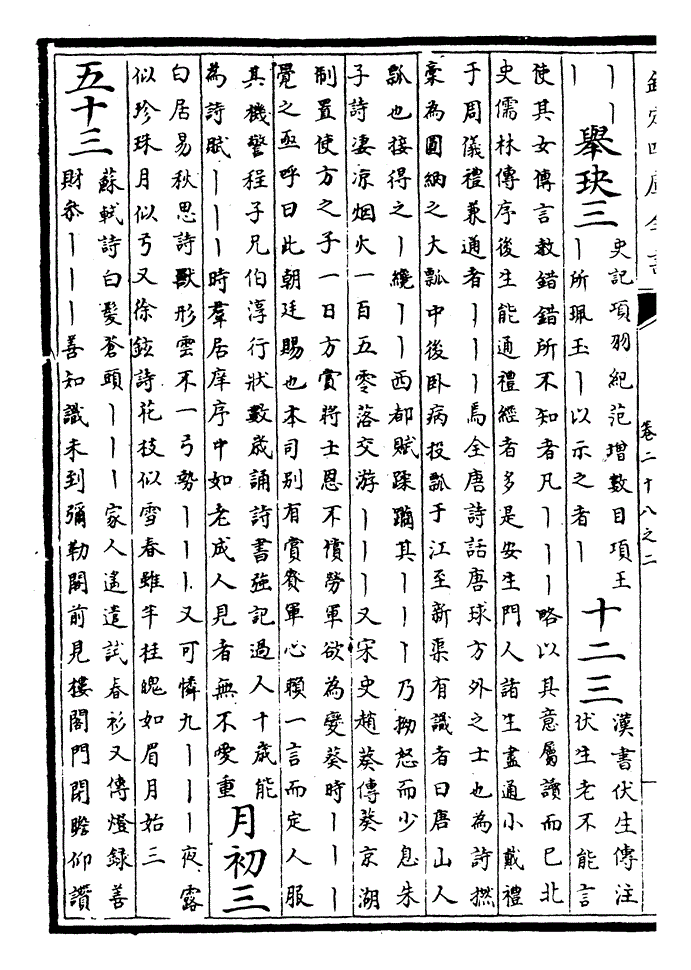 欽定四庫全書
卷二十八之二
丨丨
丨
舉玦三
史記項羽紀范增數目項王
丨所珮玉丨以示之者丨
十二三
漢書伏生傳注
伏生老不能言
使其女傳言教錯錯所不知者凡丨丨丨略以其意屬讀而已北
史儒林傳序後生能通禮經者多是安生門人諸生盡通小戴禮
于周儀禮兼通者丨丨丨焉全唐詩話唐球方外之士也為詩撚
稾為圓納之大瓢中後臥病投瓢于江至新渠有識者曰唐山人
瓢也接得之丨纔丨丨西都賦蹂躪其丨丨丨乃拗怒而少息朱
子詩凄涼烟火一百五零落交游丨丨丨又宋史趙葵傳葵京湖
制置使方之子一日方賞將士恩不償勞軍欲為變葵時丨丨丨
覺之亟呼曰此朝廷賜也本司別有賞賚軍心賴一言而定人服
其機警程子兄伯淳行狀數歲誦詩書強記過人十歲能
為詩賦丨丨丨時羣居庠序中如老成人見者無不愛重
月初三
白居易秋思詩獸形雲不一弓勢丨丨丨又可憐九丨丨丨夜露
似珍珠月似弓又徐鉉詩花枝似雪春雖半桂魄如眉月始三
五十三
蘇軾詩白髮蒼頭丨丨丨家人遙遣試春衫又傳燈錄善
財叅丨丨丨善知識未到彌勒閣前見樓閣門閉瞻仰讚